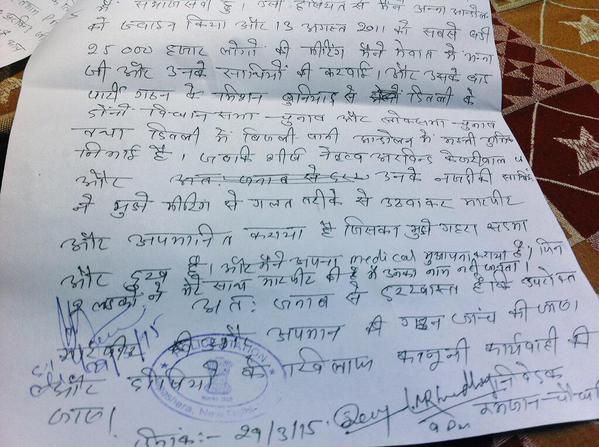 में समाजसेवी हूँ। इसी हैसियत से मैंने अन्ना आन्दोलन
को ज्वाइन किया और 13 अगस्त 2011 को सबसे बड़ी
25000 हजार लोगों की मीटिंग मैंने मेवात में अन्ना
जी और उनके साथियों की करवाई। और उसके बाद
पार्टी गठन के मिशन बुनियाद से दिल्ली के
दोनों विधान सभा चुनाव और लोकसभा चुनाव
तथा दिल्ली में बिजली पानी आन्दोलन में
निभाई है। जबकि शीर्ष नेतृत्व अरविन्द केजरीवाल
और उनके नजदीकी साथियों
ने मुझे मीटिंग से गलत तरीके से उठवाकर मारपीट
और अपमानित कराया है जिसका मुझे गहरा सदमा
और दुख है। और मैंने अपना medical मुआयना कराया है। जिन
लड़कों ने मेरे साथ मारपीट की है मैं उनका नाम नहीं जानता।
अतः जनाब से दरखास्त है कि उपरोक्त
मारपीट और अपमान की गहन जांच की जाए।
और दोषियों के खिलाफ कानूनी कार्यवाही की
जाए।
निवेदक
रमजान चौधरी
दिनांक:- 29/3/15